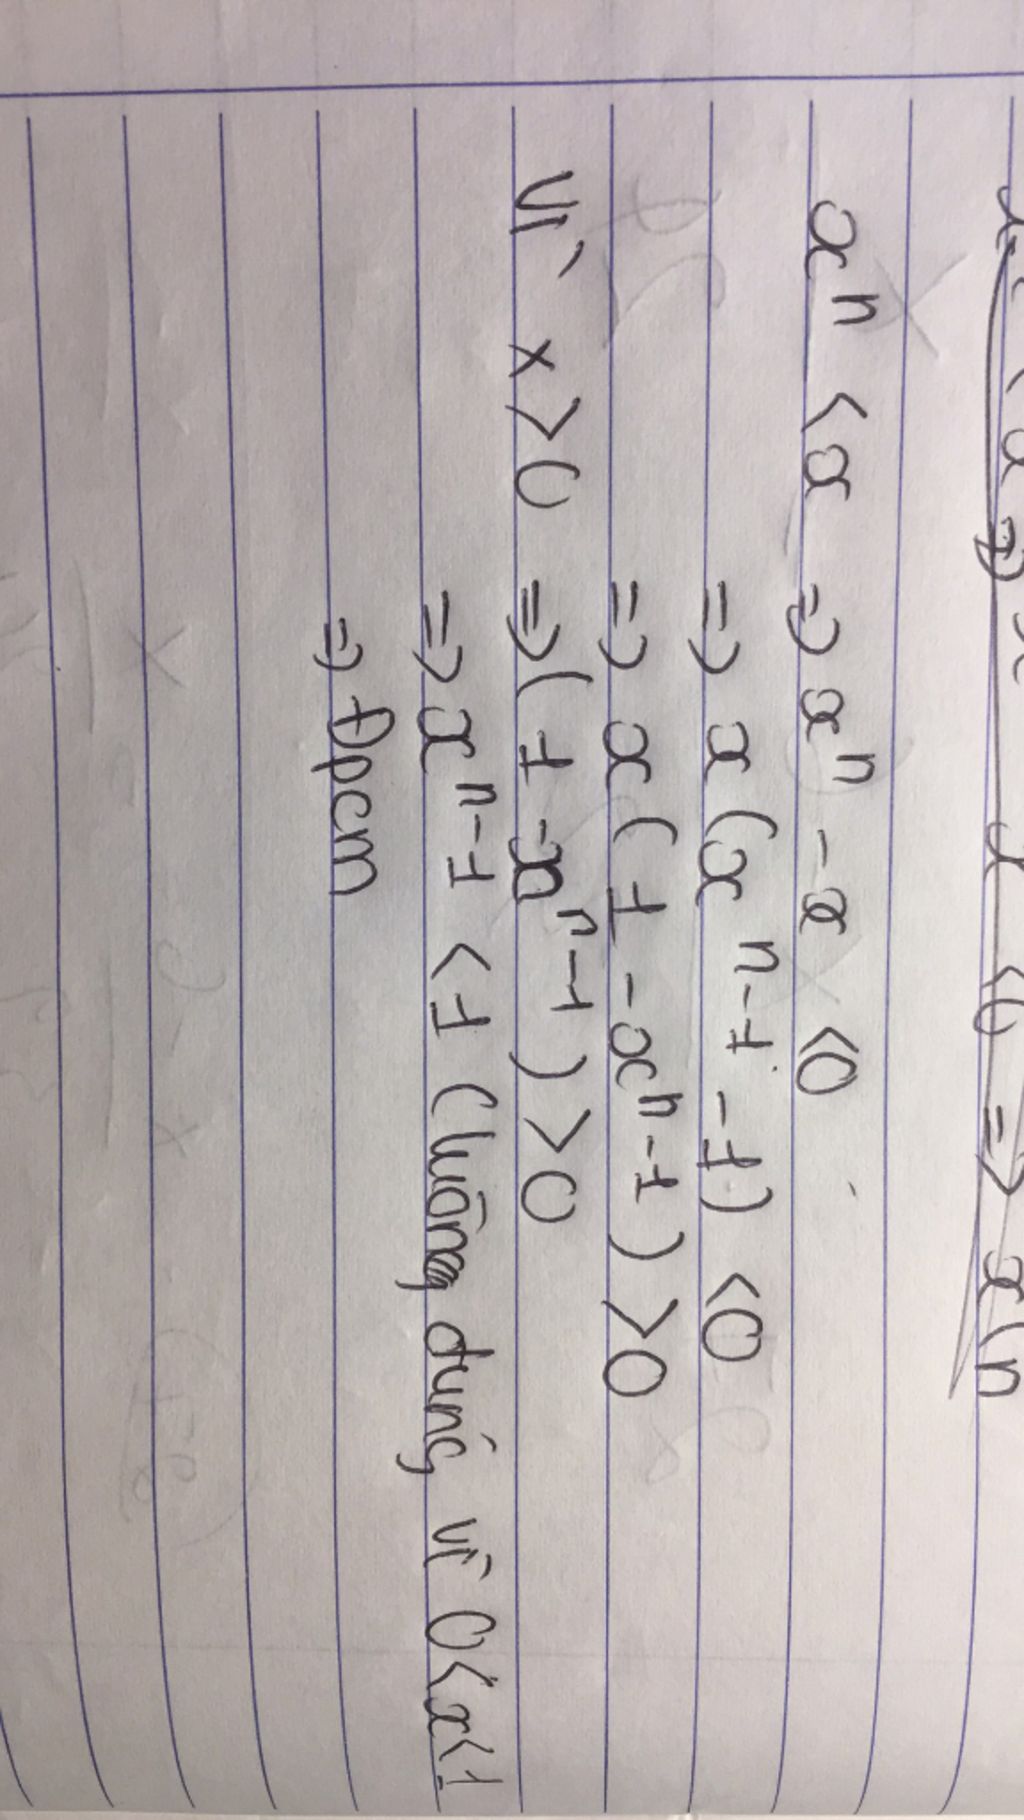 xⁿ < x => xⁿ - x < 0
=> x(xⁿ⁻¹ - 1) < 0
=> x(1 - xⁿ⁻¹) > 0
Vì x > 0 => (1 - xⁿ⁻¹) > 0
=> xⁿ⁻¹ < 1 (luông đúng vì 0 < x < 1
=> Đpcm